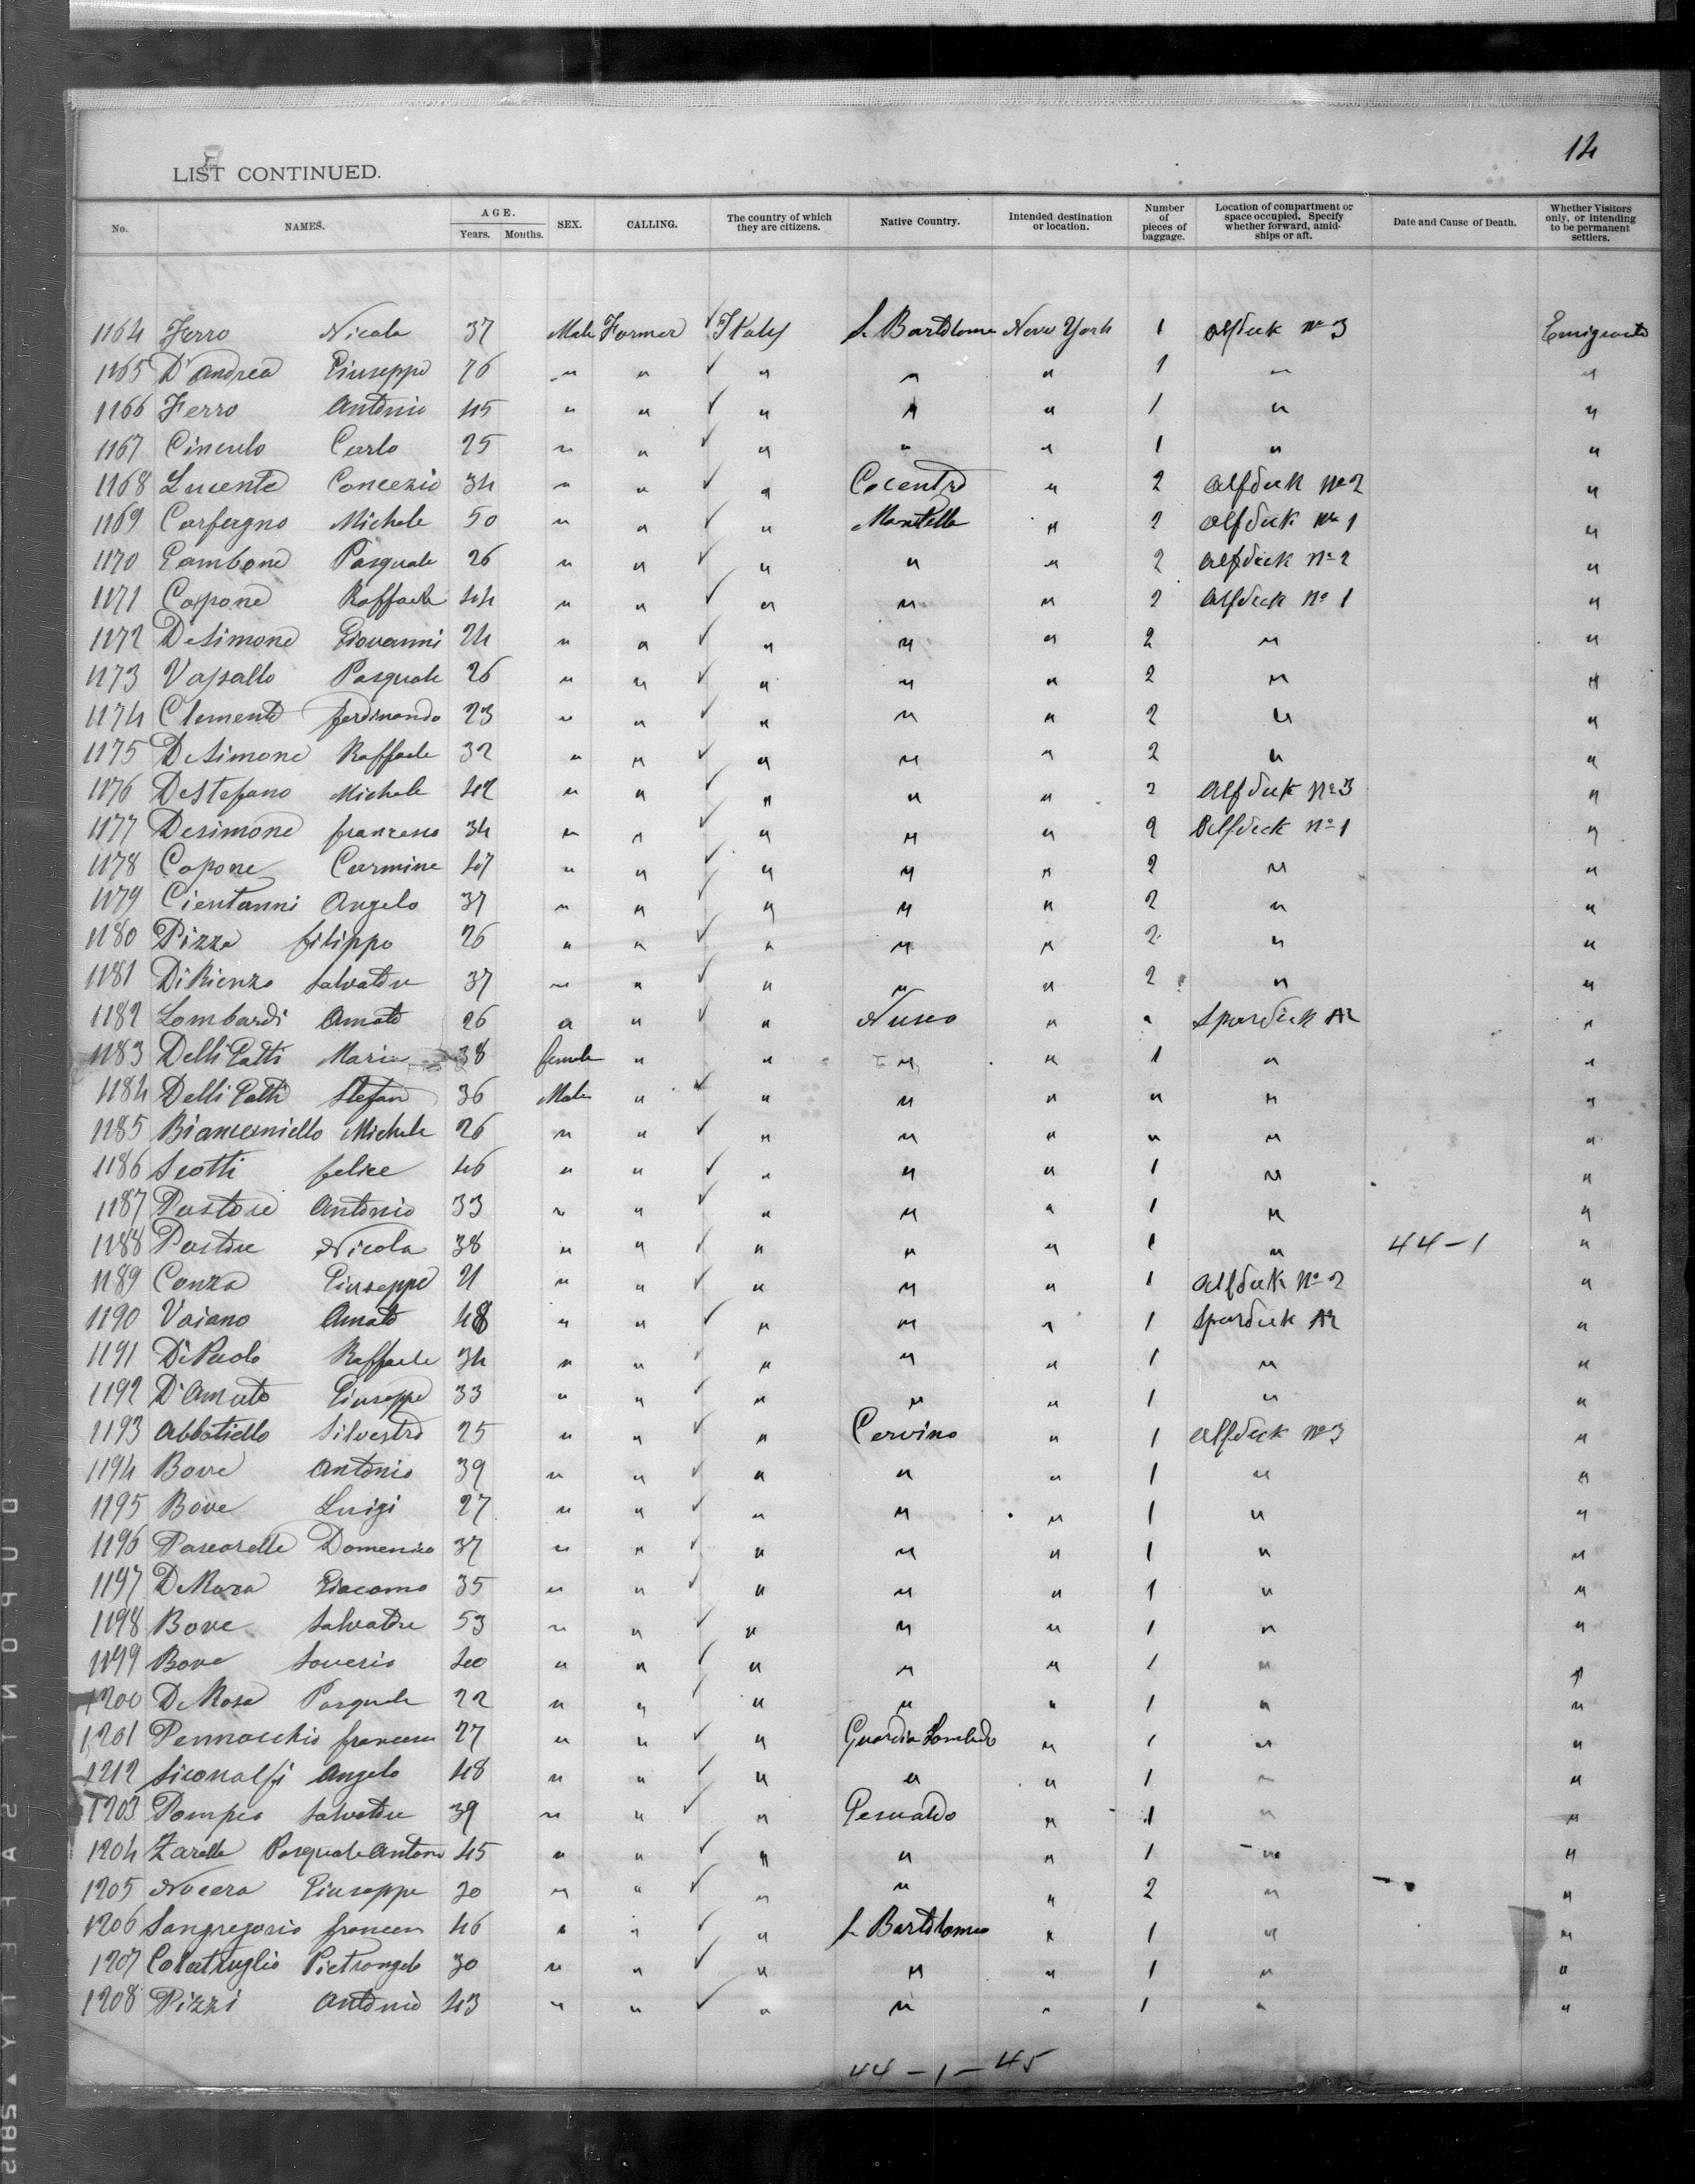 14
LIST CONTINUED.
No. NAMES. AGE. Years. Months. SEX. CALLING. The country of which they are citizens. Native Country. Intended destination or location. Number of pieces of baggage. Location of compartment or space occupied. Specify whether forward, amidships or aft. Date and Cause of Death. Whether Visitors only, or intending to be permanent settlers.
1164 Ferro Nicola 37 Male Farmer ✓ Italy S. Bartolomeo New York 1 Alfdeck No 3
1165 D'Andrea Giuseppe 26 " " ✓ " " " 1 " "
1166 Ferro Antonio 45 " " ✓ " " " 1 " "
1167 Cinculo Carlo 25 " " ✓ " " " 1 " "
1168 Lucente Concezio 34 " " ✓ " " 2 Alfdeck No 2 "
1169 Carfagno Michele 50 " " ✓ " Montella " 2 Alfdeck No 1 "
1170 Gambone Pasquale 26 " " ✓ " " " 2 Alfdeck No 2 "
1171 Capone Raffaele 44 " " ✓ " " " 2 Alfdeck No 1 "
1172 DeSimone Giovanni 24 " " ✓ " " " 2 " "
1173 Vassallo Pasquale 26 " " ✓ " " " 2 " "
1174 Clemente Ferdinando 23 " " ✓ " " " 2 " "
1175 DeSimone Raffaele 32 " " ✓ " " " 2 " "
1176 DeStefano Michele 42 " " ✓ " " " 2 Alfdeck No 3 "
1177 Desimone francesco 34 " " ✓ " " " 2 Alfdeck No 1 "
1178 Capone Carmine 47 " " ✓ " " " 2 " "
1179 Cientanni Angelo 37 " " ✓ " " " 2 " "
1180 Pizza filippo 26 " " ✓ " " " 2 " "
1181 DiRienzo Salvatore 37 " " ✓ " " " 2 " "
1182 Lombardi Amato 26 " " ✓ " Nusco " " Spardeck "
1183 Delli Gatti Maria 38 female " " " " 1 " "
1184 Delli Gatti Stefano 36 Male " ✓ " " " " " "
1185 Biancaniello Michele 26 " " ✓ " " " " " "
1186 Scotti felice 46 " " ✓ " " " 1 " "
1187 Pastore Antonio 33 " " ✓ " " " 1 " "
1188 Pastore Nicola 38 " " ✓ " " " 1 " 44-1 "
1189 Conza Giuseppe 21 " " ✓ " " " 1 Alfdeck No 2 "
1190 Vaiano Amato 48 " " ✓ " " " 1 Spardeck "
1191 DiPaolo Raffaele 34 " " ✓ " " " 1 " "
1192 D'Amato Giuseppe 33 " " ✓ " " " 1 " "
1193 Abbatiello Silvestro 25 " " ✓ " Cervino " 1 Alfdeck No 3 "
1194 Bove Antonio 39 " " ✓ " " " 1 " "
1195 Bove Luigi 27 " " ✓ " " " 1 " "
1196 Pascarella Domenico 37 " " ✓ " " " 1 " "
1197 DeRosa Giacomo 35 " " ✓ " " " 1 " "
1198 Bove Salvatore 53 " " ✓ " " " 1 " "
1199 Bove Saverio 40 " " ✓ " " " 1 " "
1200 DeRosa Pasquale 22 " " ✓ " " " 1 " "
1201 Pennacchio francesco 27 " " ✓ " Guardia Lombardo " 1 " "
1212 Siconolfi Angelo 48 " " ✓ " " " 1 " "
1203 Pompeo Salvatore 39 " " ✓ " Gesualdo " 1 " "
1204 Zarella Pasquale Antonio 45 " " ✓ " " " 1 " "
1205 Nocera Giuseppe 30 " " ✓ " " " 2 " "
1206 Sangregorio francesco 46 " " ✓ " S. Bartolomeo " 1 " "
1207 Colatruglio Pietrangelo 30 " " ✓ " " " 1 " "
1208 Pizzi Antonio 43 " " ✓ " " " 1 " "
44-1-45